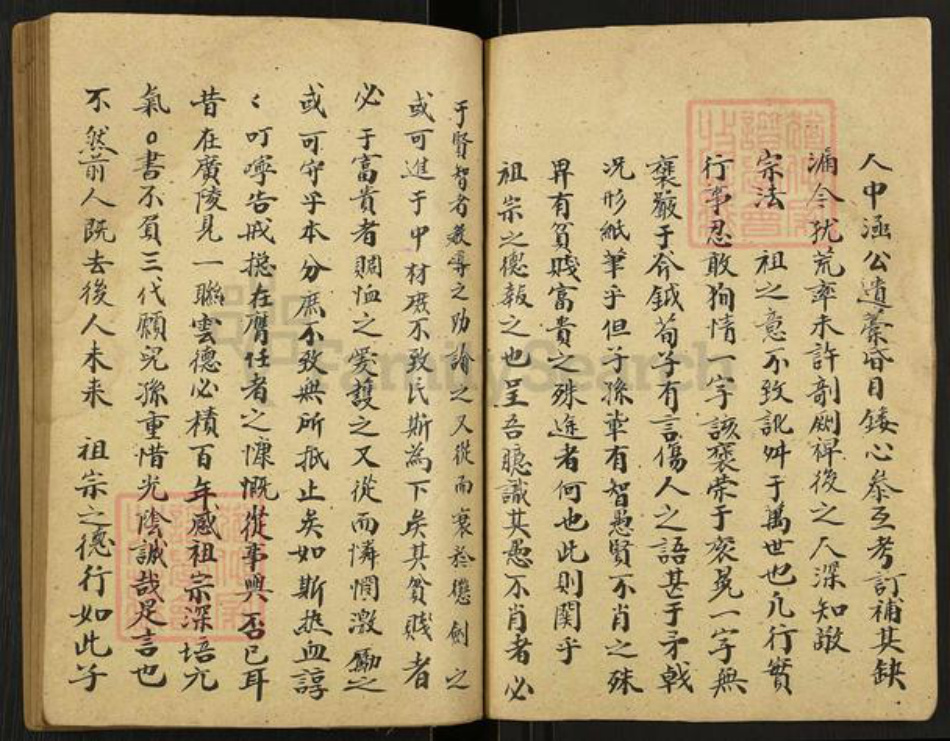 人中涵公遺藁昏目鏤心叅互考訂補其缺
漏令犹荒率未許剞劂裨後之人深知敬
宗法 祖之意不致訛舛于萬世也凡行實
行事忍敢狥情一字該褒荣于衮冕一字無
褒嚴于斧鉞荀子有言傷人之語甚于矛戟
况形紙筆乎但子孫軰有智愚賢不肖之殊
畀有貧賤富貴之殊途者何也此則関乎
祖宗之德報之也呈吾聰識其愚不肖者必
于賢智者教導之助諭之又從而哀於懲創之
或可進于中材庶不致民斯為下矣其貧賤者
必于富貴者賙恤之爱護之又從而憐憫激勵之
或可守乎本分庶不致無所抵止矣如斯热血諄
〻叮嚀告戒摠在膺任者之慷慨從事興否已耳
昔在廣陵見一聯雲德必積百年感祖宗深培元
氣○書不負三代願兒孫重惜光陰誠哉是言也
不然前人既去後人未来 祖宗之德行如此子
FamilySearch